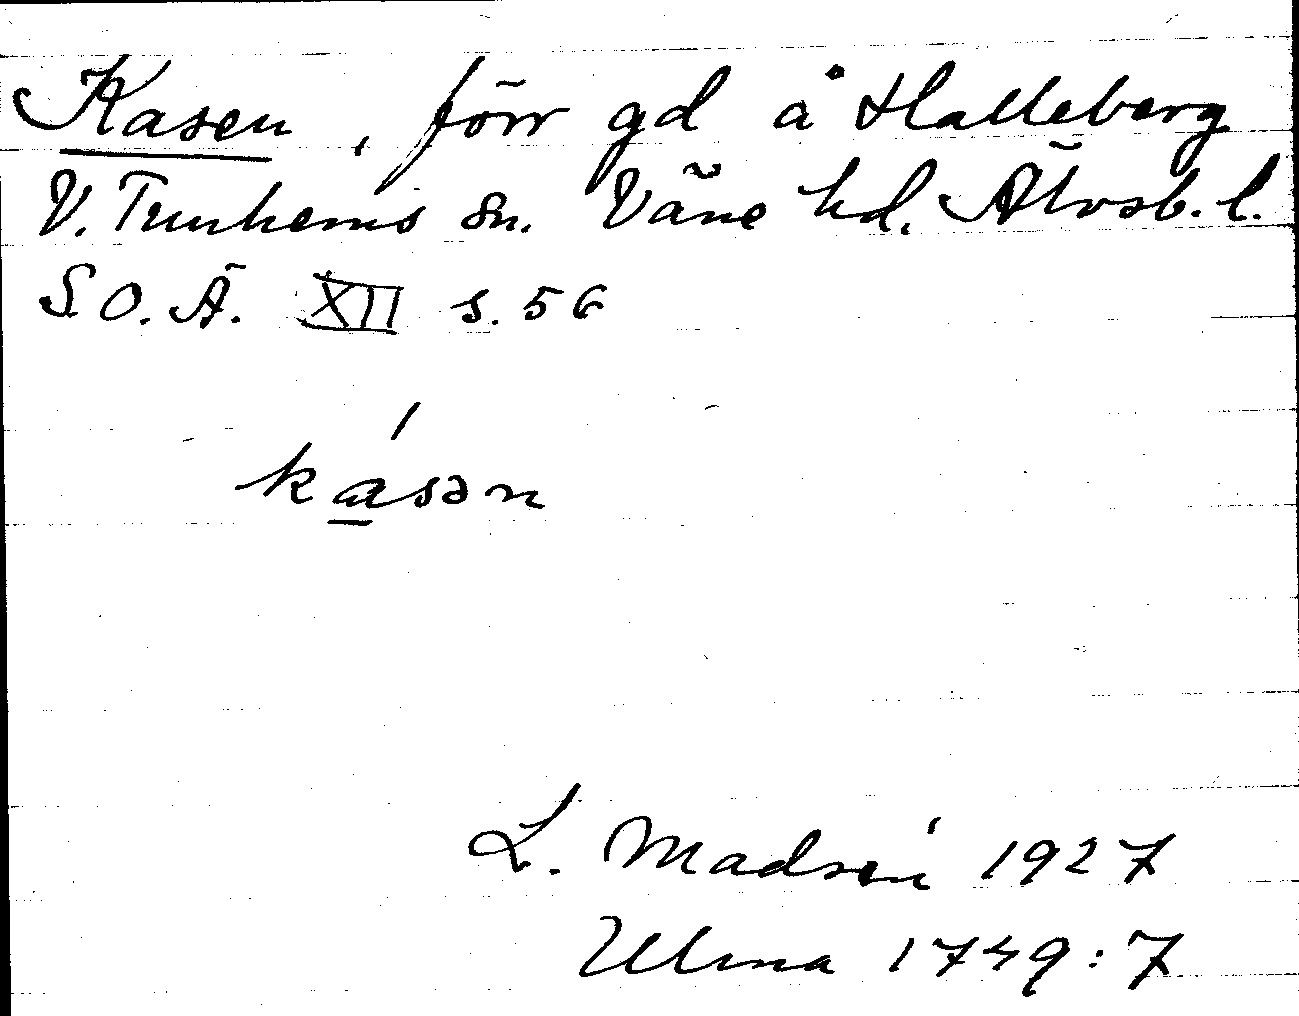 Kasen, förr gd å Halleberg
V. Tunhems sn. Väne hd. Älvsb. l.
S.O.Ä. XII s. 56
kásən
L. Madsén 1927
Ulma 1749:7